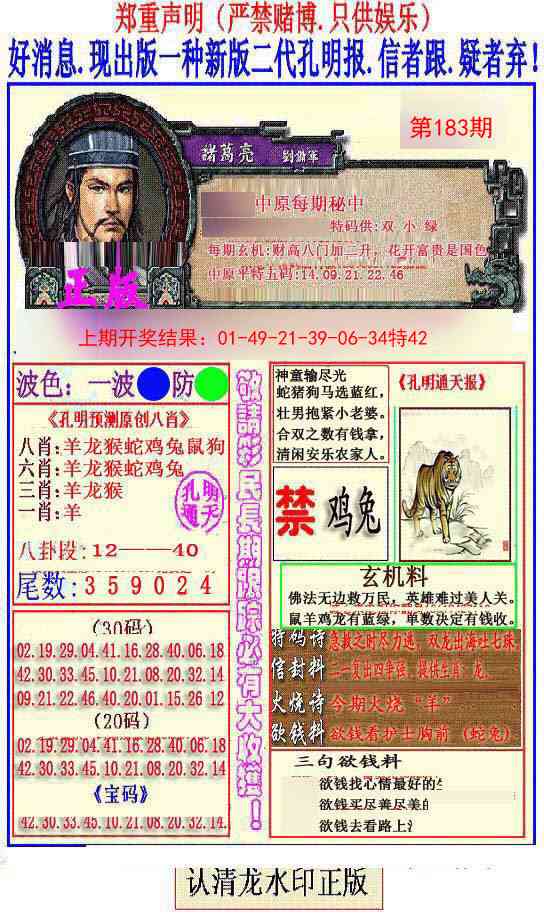 郑重声明（严禁赌博.只供娱乐）
好消息.现出版一种新版二代孔明报.信者跟.疑者弃!
第183期
諸葛亮
中原每期秘中
特码供:双 小 绿
每期玄机:财高八门加二升，花开富贵是国色
中原平特五码:14.09.21.22.46
正版
上期开奖结果：01-49-21-39-06-34特42
波色：一波 防
《孔明预测原创八肖》
八肖:羊龙猴蛇鸡兔鼠狗
六肖:羊龙猴蛇鸡兔
三肖:羊龙猴
一肖:羊
孔明
通天
八卦段:12——40
尾数:359024
(30码)
02.19.29.04.41.16.28.40.06.18
42.30.33.45.10.21.08.20.32.14
09.21.22.46.40.20.01.15.26.12
(20码)
02.19.29.04.41.16.28.40.06.18
42.30.33.45.10.21.08.20.32.14
《宝码》
42.30.33.45.10.21.08.20.32.14.
敬請彩民長期跟踪必有大收獲！
神童输尽光
蛇猪狗马选蓝红，
壮男抱紧小老婆。
合双之数有钱拿，
清闲安乐农家人。
《孔明通天报》
禁 鸡兔
玄机料
佛法无边救万民，英雄难过美人关。
鼠羊鸡龙有蓝绿，单数决定有钱收。
特码诗 急救之时尽力逃，双龙出海吐七珠
信封料 二一复出四事强，提供生肖：龙、
火烧诗 今期火烧“羊”
欲钱料 欲钱看护士胸前（蛇兔）
三句欲钱料
欲钱找心情最好的
欲钱买尽善尽美
欲钱去看路上
认清龙水印正版